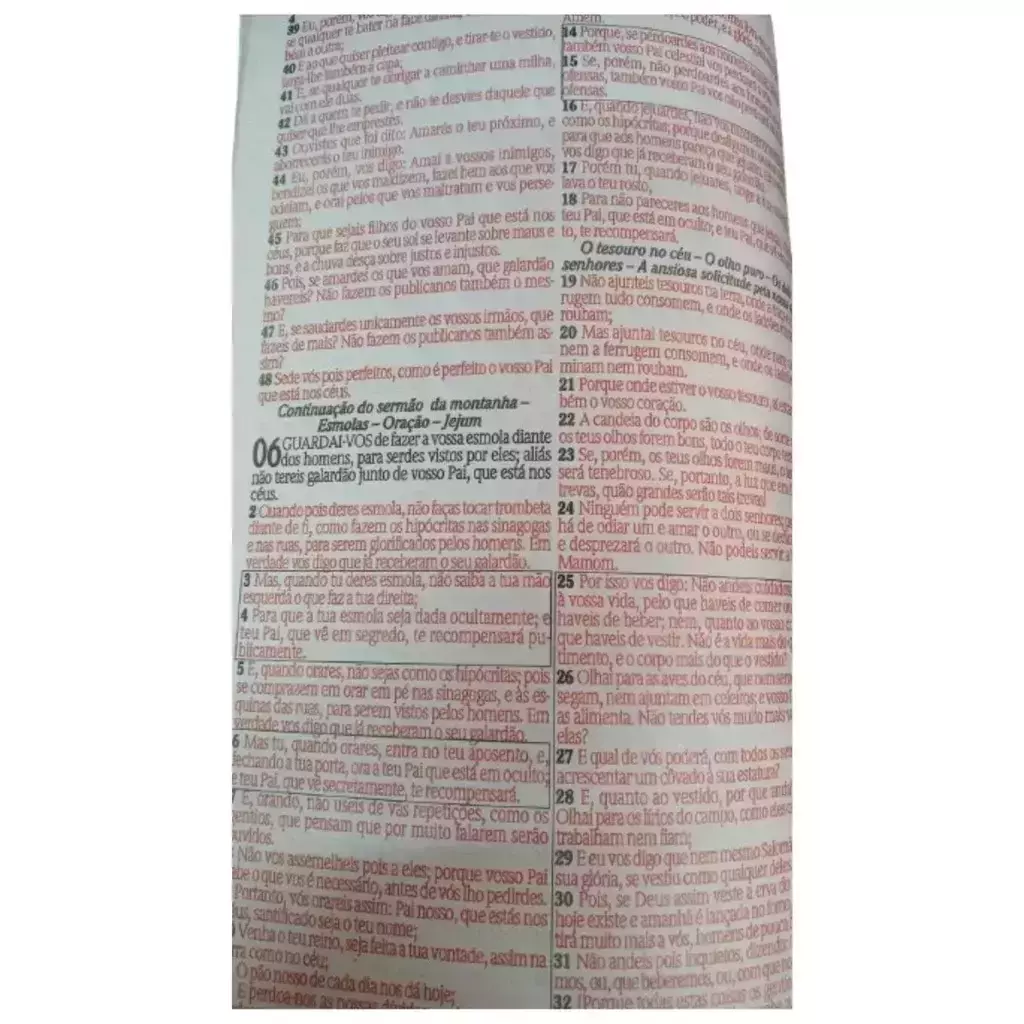 4
39 Eu, porém, vos
se qualquer te bater na face
a outra;
40 E ao que quiser pleitear contigo, e tirar-te o vestido,
larga-lhe também a capa;
41 E, se qualquer te obrigar a caminhar uma milha,
vai com ele duas.
42 Dá a quem te pedir, e não te desvies daquele que
quiser que lhe emprestes.
43 Ouvistes que foi dito: Amarás o teu próximo, e
aborrecerás o teu inimigo.
44 Eu, porém, vos digo: Amai a vossos inimigos,
bendizei os que vos maldizem, fazei bem aos que vos
odeiam, e orai pelos que vos maltratam e vos perse-
guem;
45 Para que sejais filhos do vosso Pai que está nos
céus, porque faz que o seu sol se levante sobre maus e
bons, e a chuva desça sobre justos e injustos.
46 Pois, se amardes os que vos amam, que galardão
havereis? Não fazem os publicanos também o mes-
mo?
47 E, se saudardes unicamente os vossos irmãos, que
fazeis de mais? Não fazem os publicanos também as-
sim?
48 Sede vós pois perfeitos, como é perfeito o vosso Pai
que está nos céus.
Continuação do sermão da montanha –
Esmolas – Oração – Jejum
06 GUARDAI-VOS de fazer a vossa esmola diante
dos homens, para serdes vistos por eles; aliás
não tereis galardão junto de vosso Pai, que está nos
céus.
2 Quando pois deres esmola, não faças tocar trombeta
diante de ti, como fazem os hipócritas nas sinagogas
e nas ruas, para serem glorificados pelos homens. Em
verdade vos digo que já receberam o seu galardão.
3 Mas, quando tu deres esmola, não saiba a tua mão
esquerda o que faz a tua direita;
4 Para que a tua esmola seja dada ocultamente; e
teu Pai, que vê em segredo, te recompensará pu-
blicamente.
5 E, quando orares, não sejas como os hipócritas; pois
se comprazem em orar em pé nas sinagogas, e às es-
quinas das ruas, para serem vistos pelos homens. Em
verdade vos digo que já receberam o seu galardão.
6 Mas tu, quando orares, entra no teu aposento, e,
fechando a tua porta, ora a teu Pai que está em oculto;
e teu Pai, que vê secretamente, te recompensará.
7 E, orando, não useis de vãs repetições, como os
gentios, que pensam que por muito falarem serão
ouvidos.
Não vos assemelheis pois a eles; porque vosso Pai
o que vos é necessário, antes de vós lho pedirdes.
Portanto, vós orareis assim: Pai nosso, que estás nos
santificado seja o teu nome;
Venha o teu reino, seja feita a tua vontade, assim na
como no céu;
O pão nosso de cada dia nos dá hoje;
E perdoa-nos as nossas
Amém.
14 Porque, se perdoardes aos homens
também vosso Pai celestial vos perdoará
15 Se, porém, não perdoardes aos homens
ofensas, também vosso Pai vos não perdoará
ofensas.
16 E, quando jejuardes, não vos mostreis
como os hipócritas; porque desfiguram
para que aos homens pareça que jejuam.
vos digo que já receberam o seu galardão.
17 Porém tu, quando jejuares, unge a tua
lava o teu rosto,
18 Para não pareceres aos homens que jejuas,
teu Pai, que está em oculto; e teu Pai, que
to, te recompensará.
O tesouro no céu – O olho puro – Os
senhores – A ansiosa solicitude pela nossa
19 Não ajunteis tesouros na terra, onde a traça
rugem tudo consomem, e onde os ladrões
roubam;
20 Mas ajuntai tesouros no céu, onde nem
nem a ferrugem consomem, e onde os ladrões
minam nem roubam.
21 Porque onde estiver o vosso tesouro, aí
bém o vosso coração.
22 A candeia do corpo são os olhos; de sorte
os teus olhos forem bons, todo o teu corpo
23 Se, porém, os teus olhos forem maus, o
será tenebroso. Se, portanto, a luz que em
trevas, quão grandes serão tais trevas!
24 Ninguém pode servir a dois senhores;
há de odiar um e amar o outro, ou se
e desprezará o outro. Não podeis servir a
Mamom.
25 Por isso vos digo: Não andeis
à vossa vida, pelo que haveis de comer ou
haveis de beber; nem, quanto ao vosso
que haveis de vestir. Não é a vida mais do
timento, e o corpo mais do que o vestido?
26 Olhai para as aves do céu, que nem
segam, nem ajuntam em celeiros; e vosso
as alimenta. Não tendes vós muito mais
elas?
27 E qual de vós poderá, com todos os
acrescentar um côvado à sua estatura?
28 E, quanto ao vestido, por que
Olhai para os lírios do campo, como eles
trabalham nem fiam;
29 E eu vos digo que nem mesmo Salomão
sua glória, se vestiu como qualquer deles
30 Pois, se Deus assim veste a erva do
hoje existe e amanhã é lançada no forno,
tirá muito mais a vós, homens de pouca
31 Não andeis pois inquietos, dizendo:
mos, ou, que beberemos, ou, com que
32 (Porque todas estas coisas os